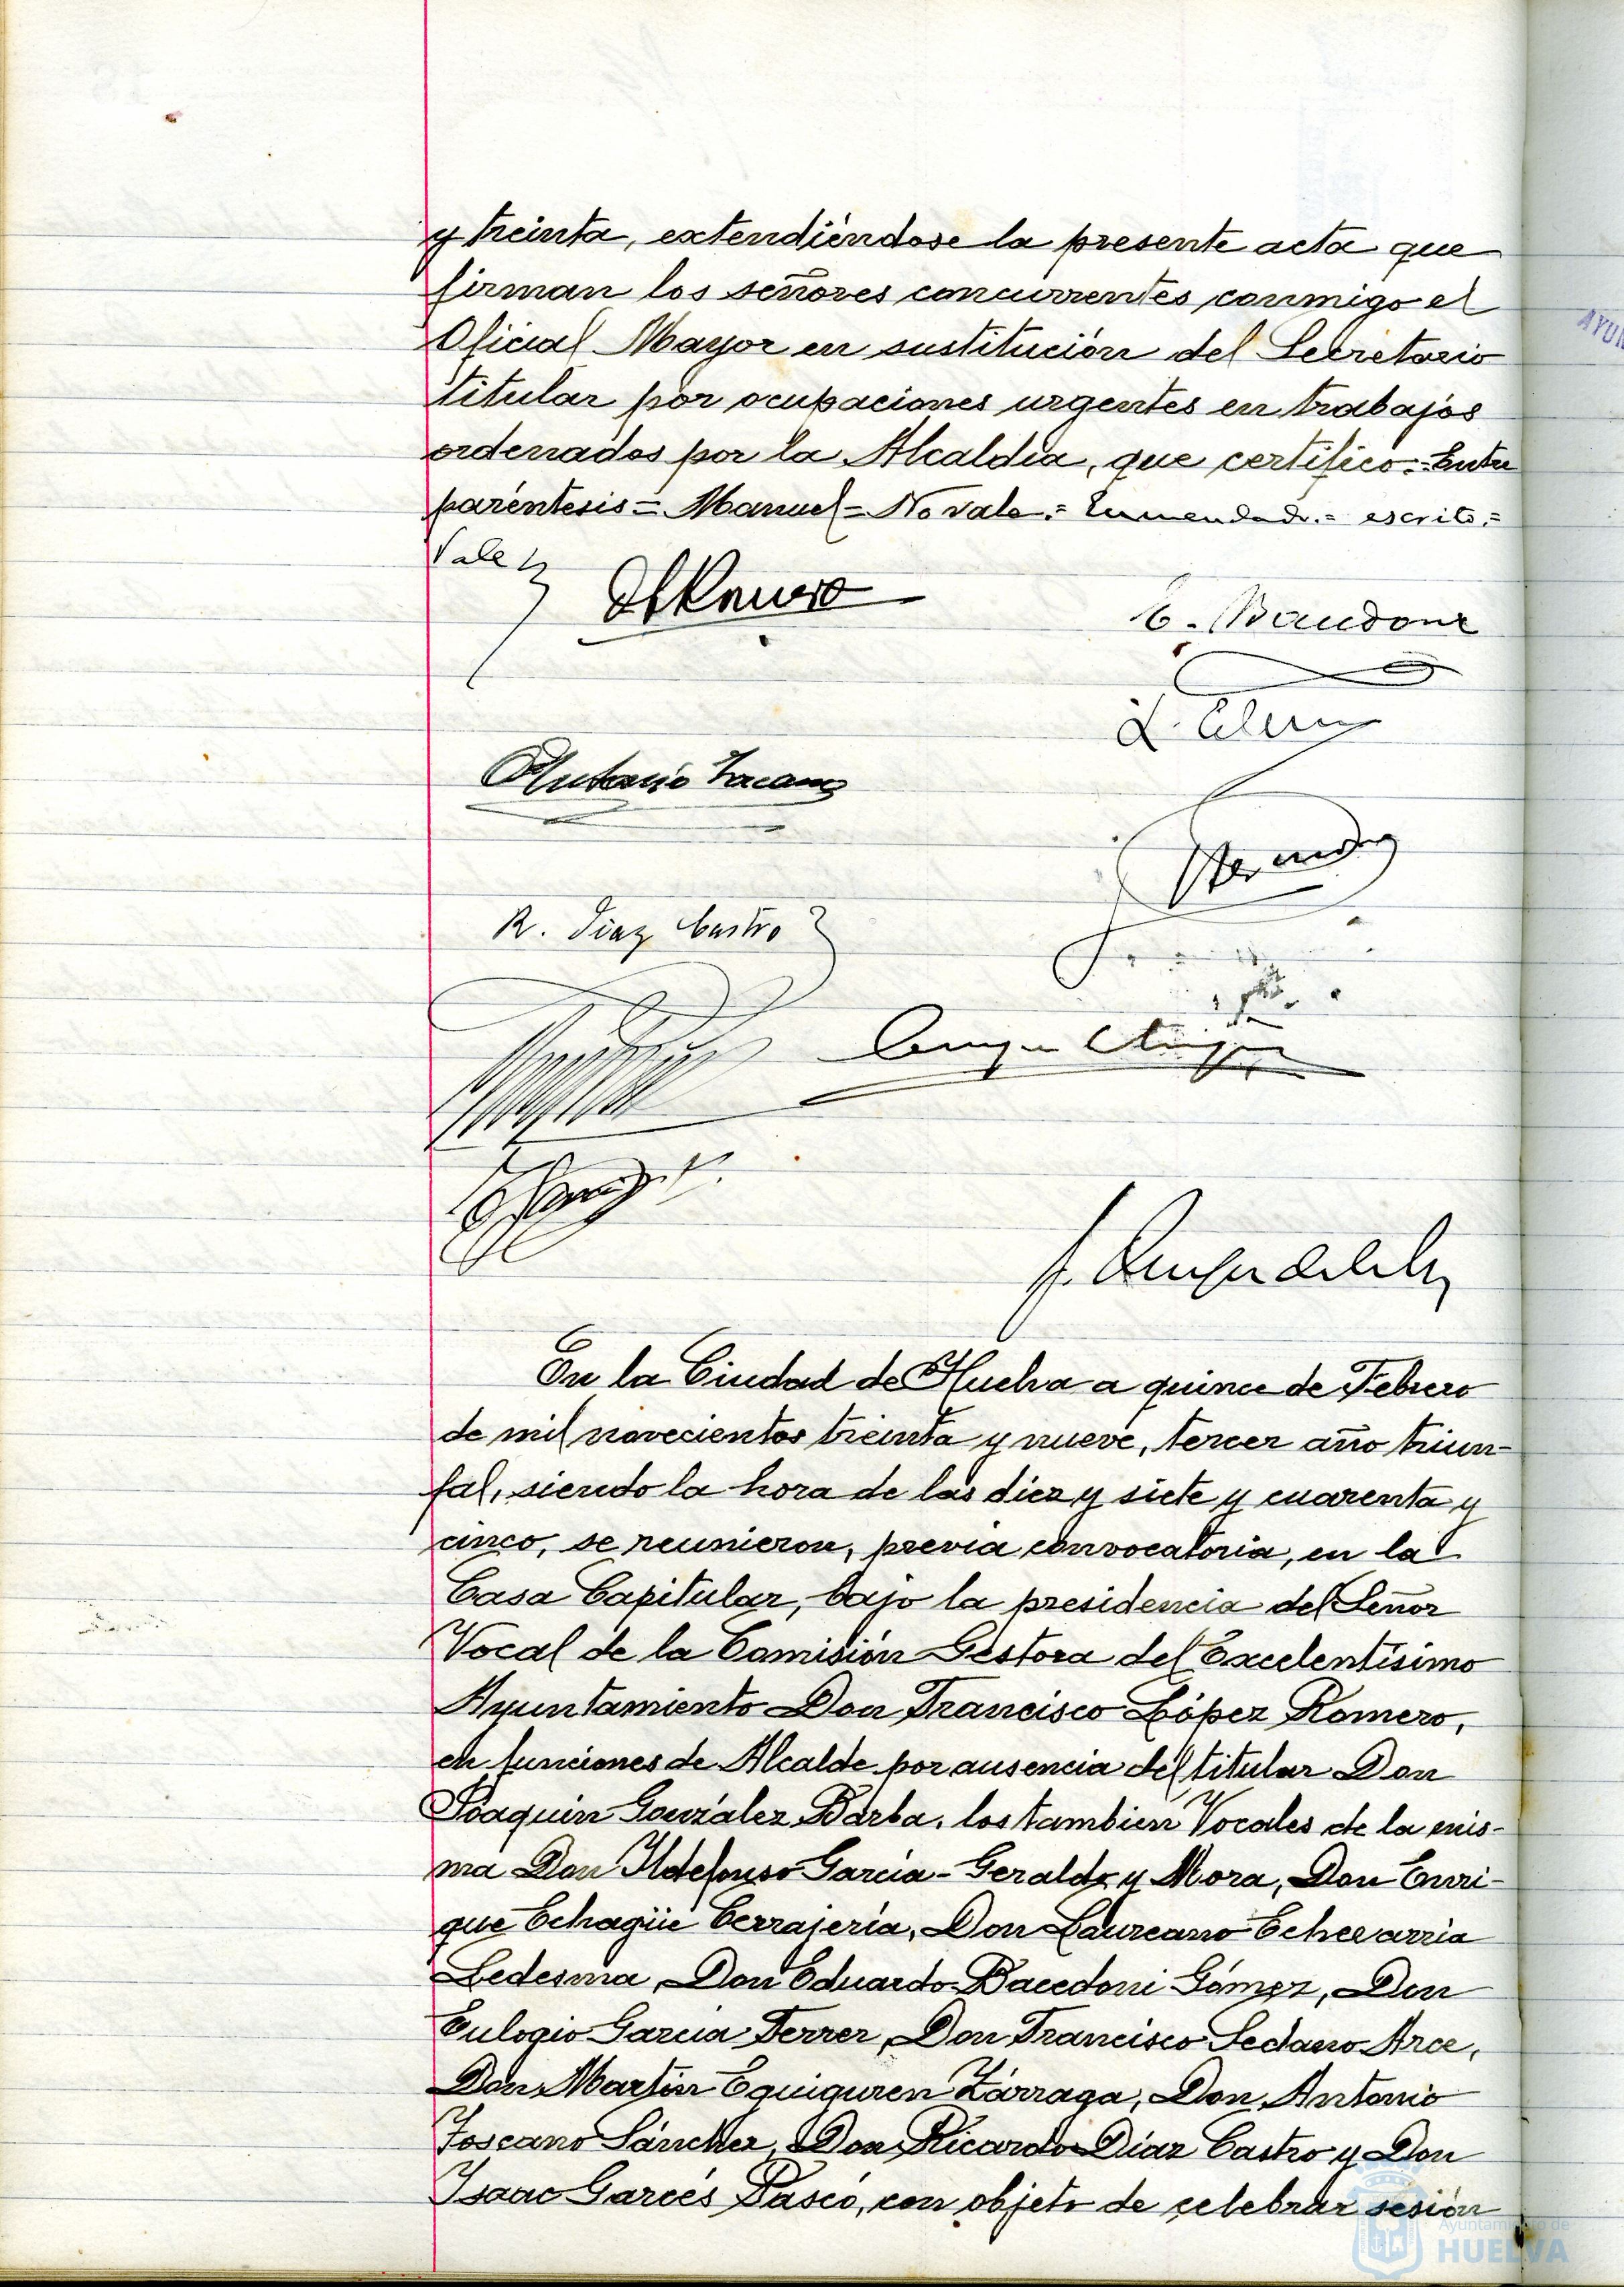 y treinta, extendiéndose la presente acta que
firman los señores concurrentes conmigo el
Oficial Mayor en sustitución del Secretario
titular por ocupaciones urgentes en trabajos
ordenados por la Alcaldía, que certifico.=Entre
paréntesis=Manuel=No vale.=Enmendado.=escrito.=
Vale
E. Bacedoni
Antonio Toscano
R. Díaz Castro
En la Ciudad de Huelva a quince de Febrero
de mil novecientos treinta y nueve, tercer año triun-
fal, siendo la hora de las diez y siete y cuarenta y
cinco, se reunieron, previa convocatoria, en la
Casa Capitular, bajo la presidencia del Señor
Vocal de la Comisión Gestora del Excelentísimo
Ayuntamiento Don Francisco López Romero,
en funciones de Alcalde por ausencia del titular Don
Joaquín González Barba, los tambien Vocales de la mis-
ma Don Ildefonso García-Geraldo y Mora, Don Enri-
que Echagüe Cerrajería, Don Laureano Echevarría
Ledesma, Don Eduardo Bacedoni Gómez, Don
Eulogio García Ferrer, Don Francisco Sedano Arce,
Don Martín Eguiguren Zárraga, Don Antonio
Toscano Sánchez, Don Ricardo Díaz Castro y Don
Isaac Garcés Pasco, con objeto de celebrar sesión
Ayuntamiento de
HUELVA